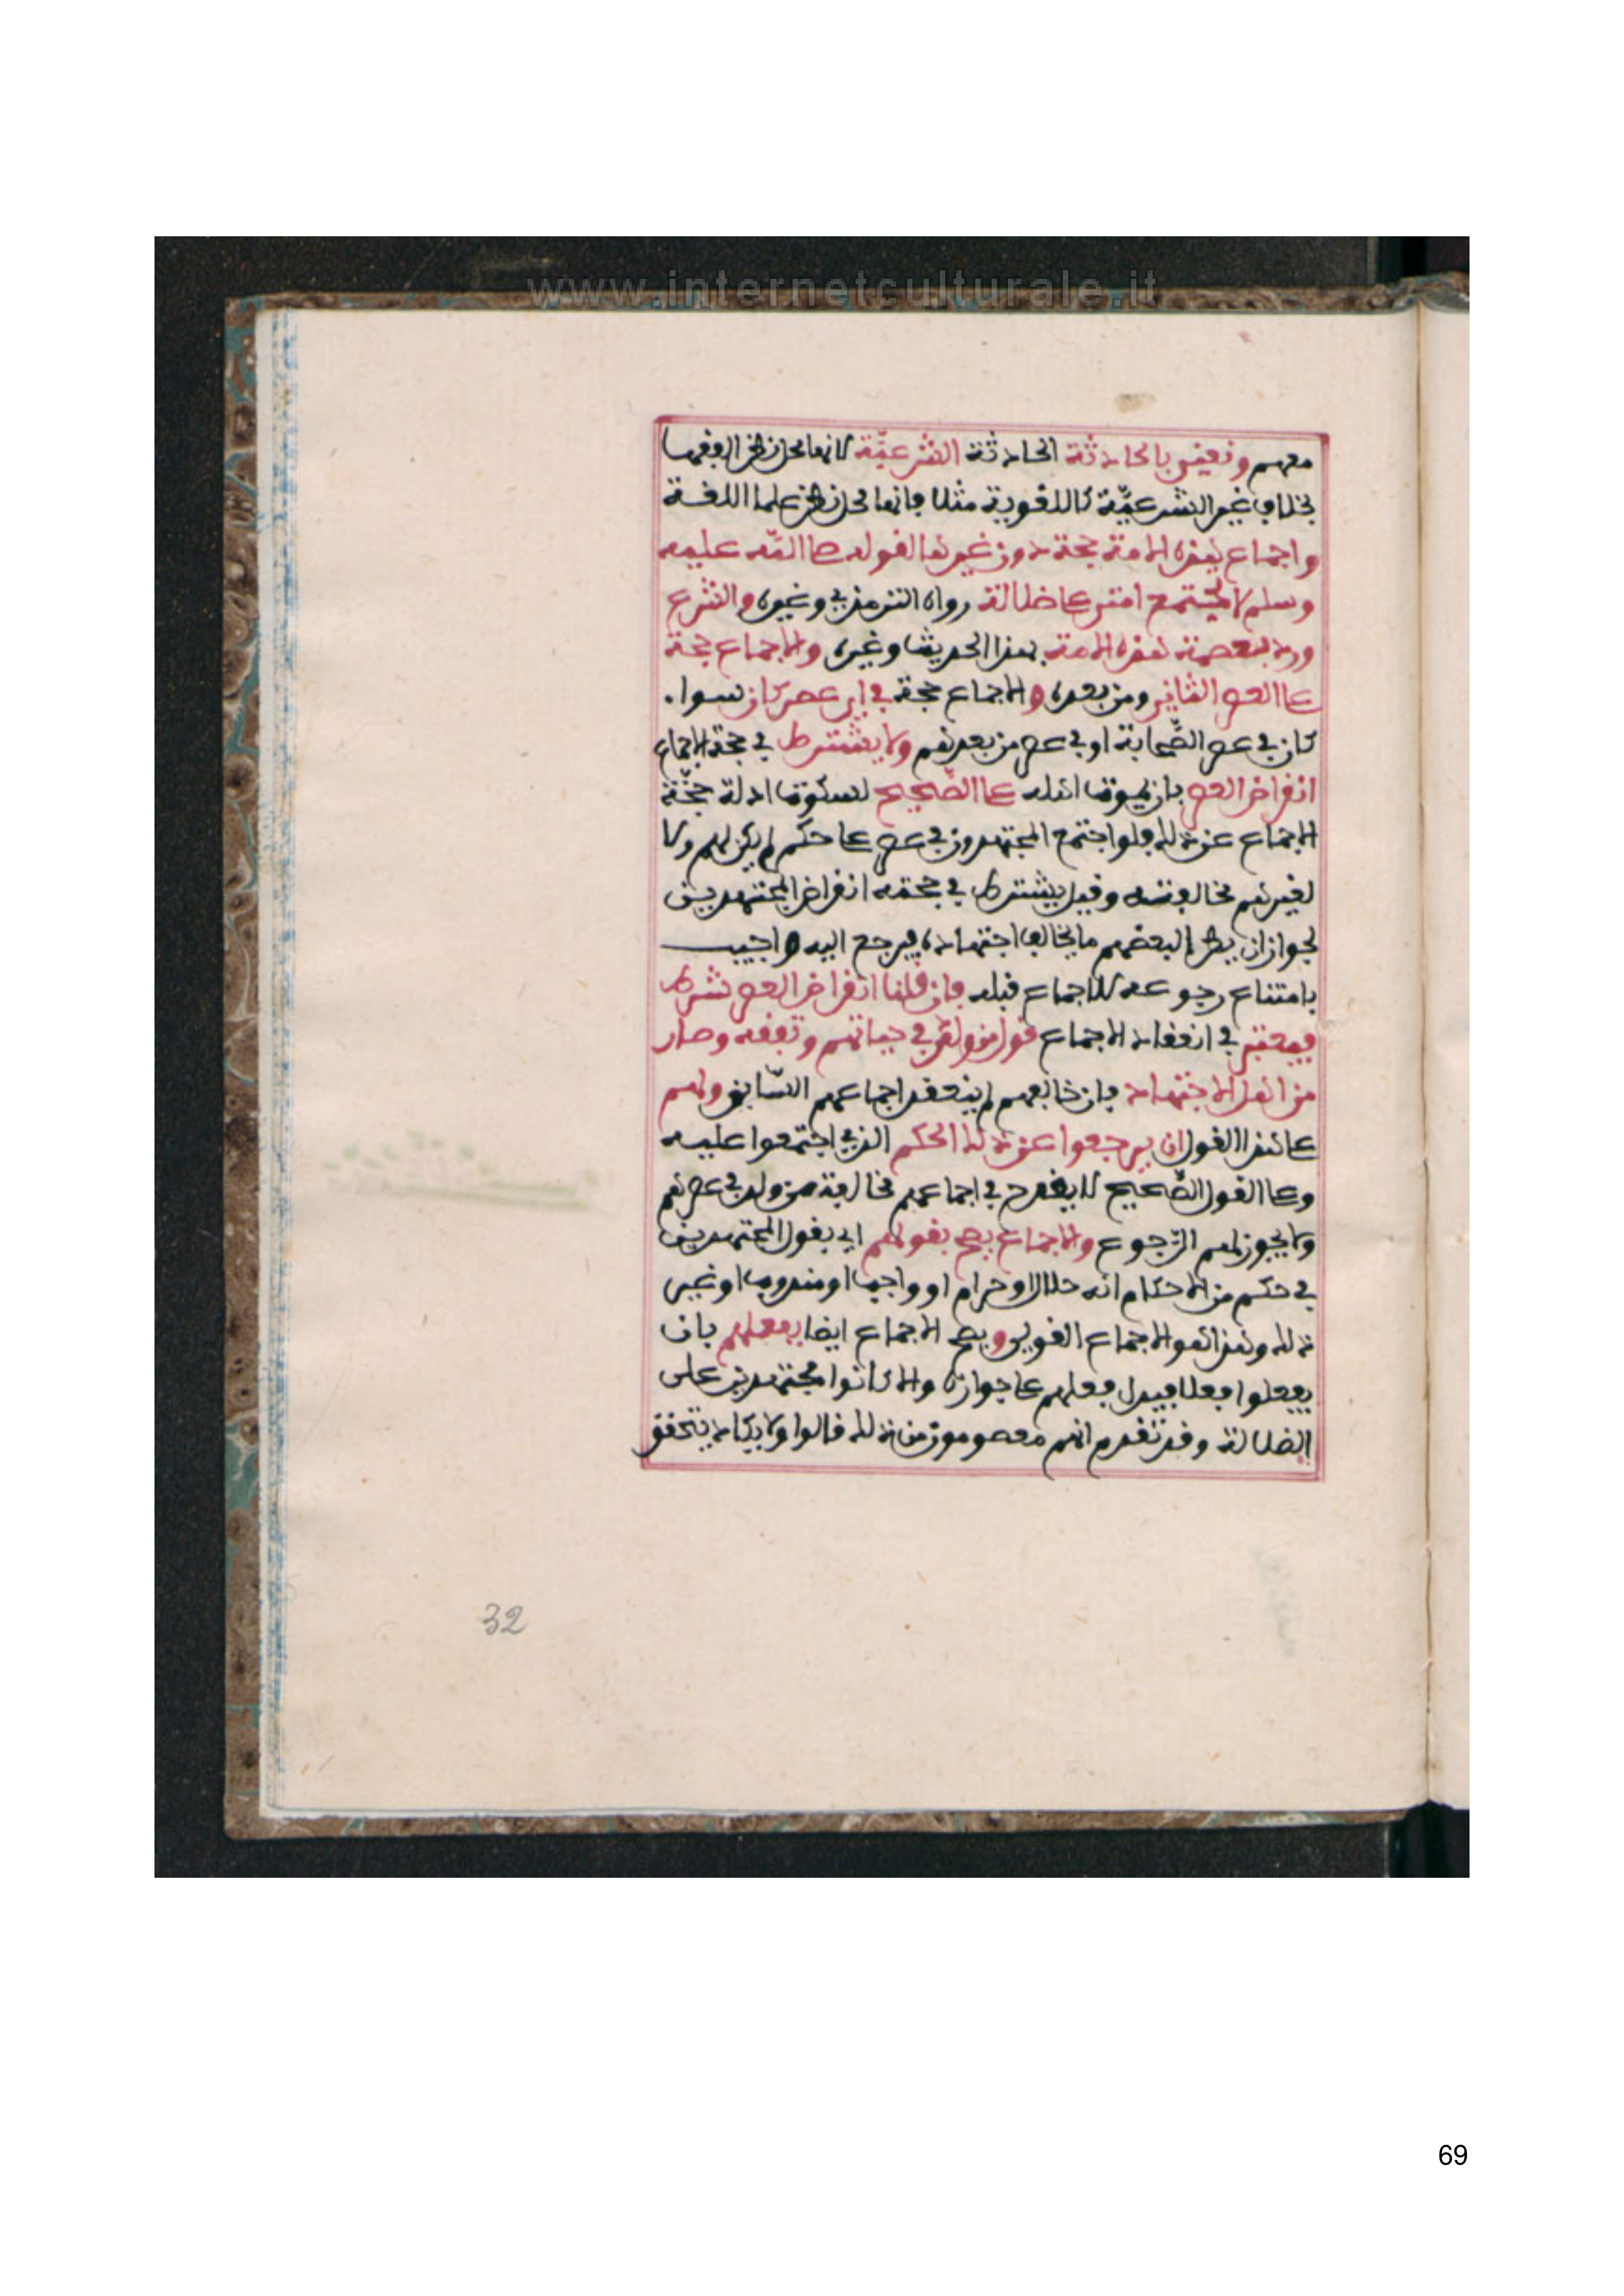 www.internetculturale.it
معهم ونعني بالحادثة الحادثة الشرعيّة لانها محل نظر الفقهـا
بخلاف غير الشرعيّة كاللغوية مثلا فانها محل نظر علما اللغـة
واجماع هذه الامة حجة دون غيرها لقوله صلى اللّه عليه
وسلم لا تجتمع امتي على ضلالة رواه الترمذي وغيره والشرع
ورد بعصمة هذه الامة بهذا الحديث وغيره والاجماع حجة
على العصر الثاني ومن بعده والاجماع حجة في اي عصر كان سوا.
كان في عصر الصّحابة او في عصر من بعدهم ولا يشترط في حجة الاجماع
انقراض العصر بان يموت اهله على الصّحيح لسكوت ادلة حجّة
الاجماع عن ذلك فلو اجتمع المجتهدون في عصر على حكم لم يكن لهم ولا
لغيرهم مخالفته وقيل يشترط في حجته انقراض المجتهدين
لجواز ان يطرا لبعضهم ما يخالف اجتهاده فيرجع اليه واجيب
بامتناع رجوعه للاجماع قبله فان قلنا انقراض العصر شرط
فيعتبر في انعقاد الاجماع قول من ولد في حياتهم وتفقه وصار
من اهل الاجتهاد فان خالفهم لم ينعقد اجماعهم السّابق ولهم
على هذا القول ان يرجعوا عن ذلك الحكم الذي اجتمعوا عليه
وعلى القول الصّحيح لا يقدح في اجماعهم مخالفة من ولد في عصرهم
ولا يجوز لهم الرّجوع والاجماع يصح بقولهم اي بقول المجتهدين
في حكم من الاحكام انه حلال او حرام او واجب او مندوب او غير
ذلك وهذا هو الاجماع القولي ويصح الاجماع ايضا بفعلهم بان
يفعلوا فعلا فيدل فعلهم على جوازه والا كانوا مجتهدين على
الضلالة وقد تقدم انهم معصومون من ذلك قالوا ولا يكاد يتحقق
32
69